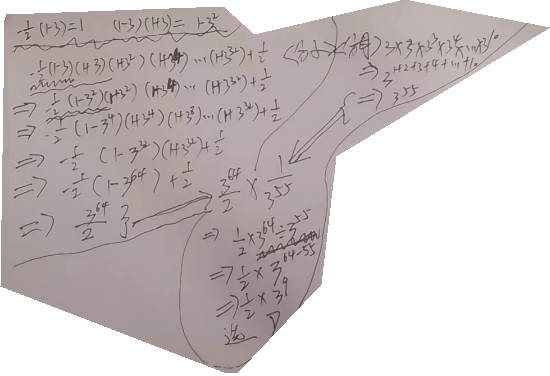 -1/2(1-3)=1 (1-3)(1+3)=1-3²
-1/2(1-3)(1+3)(1+3²)(1+3⁴)…(1+3³²)+1/2
⇒ -1/2(1-3²)(1+3²)(1+3⁴)…(1+3³²)+1/2
⇒ -1/2(1-3⁴)(1+3⁴)(1+3⁸)…(1+3³²)+1/2
⇒ -1/2(1-3³²)(1+3³²)+1/2
⇒ -1/2(1-3⁶⁴)+1/2
⇒ 3⁶⁴/2
3×3²×3³×3⁴×…×3¹⁰
⇒ 3^1+2+3+4+…+10
⇒ 3⁵⁵
3⁶⁴/2 × 1/3⁵⁵
⇒ 1/2×3⁶⁴÷3⁵⁵
⇒ 1/2×3⁶⁴⁻⁵⁵
⇒ 1/2×3⁹
选 D